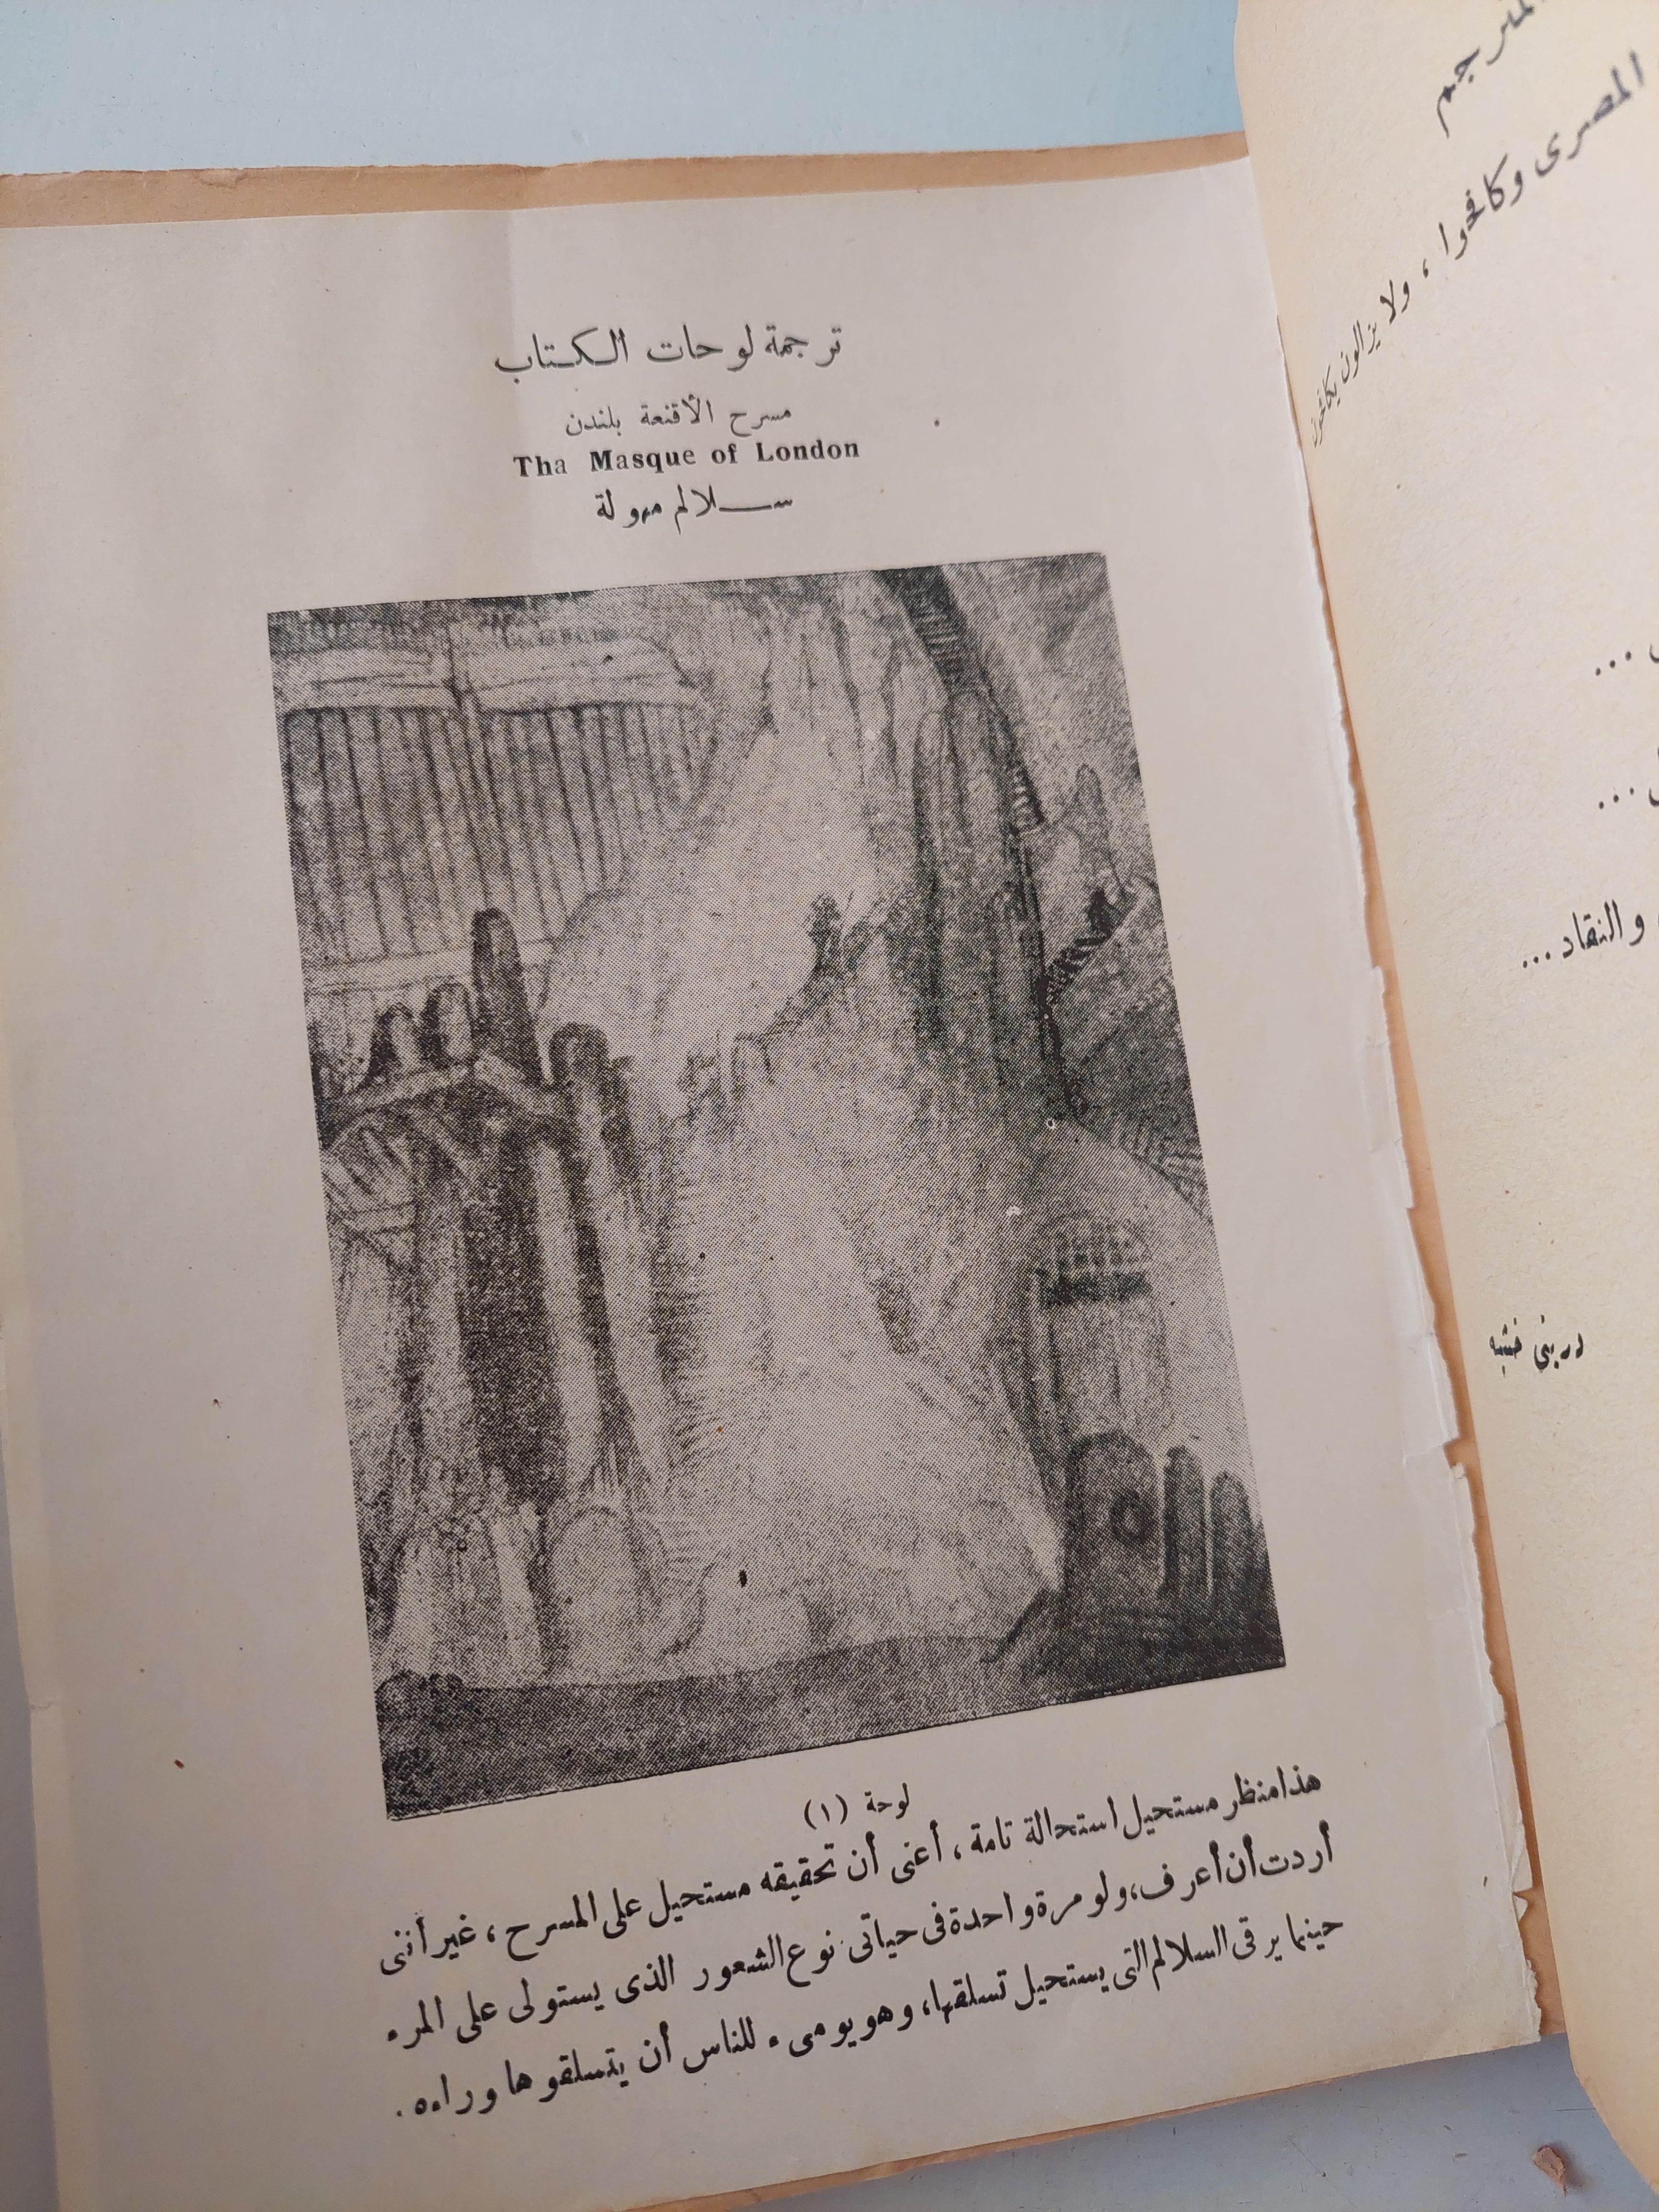 المترجم
المصرى وكافحوا ، ولا يزالون يكافحون
...
...
والنقاد ...
درينى خشبه
ترجمة لوحات الكتاب
مسرح الأقنعة بلندن
Tha Masque of London
ســـلالم مهولة
لوحة (١)
هذا منظر مستحيل استحالة تامة ، أعنى أن تحقيقه مستحيل على المسرح ، غير أننى
أردت أن أعرف، ولو مرة واحدة فى حياتى نوع الشعور الذى يستولى على المرء
حينما يرقى السلالم التى يستحيل تسلقها، وهو يومىء للناس أن يتسلقوها وراءه .